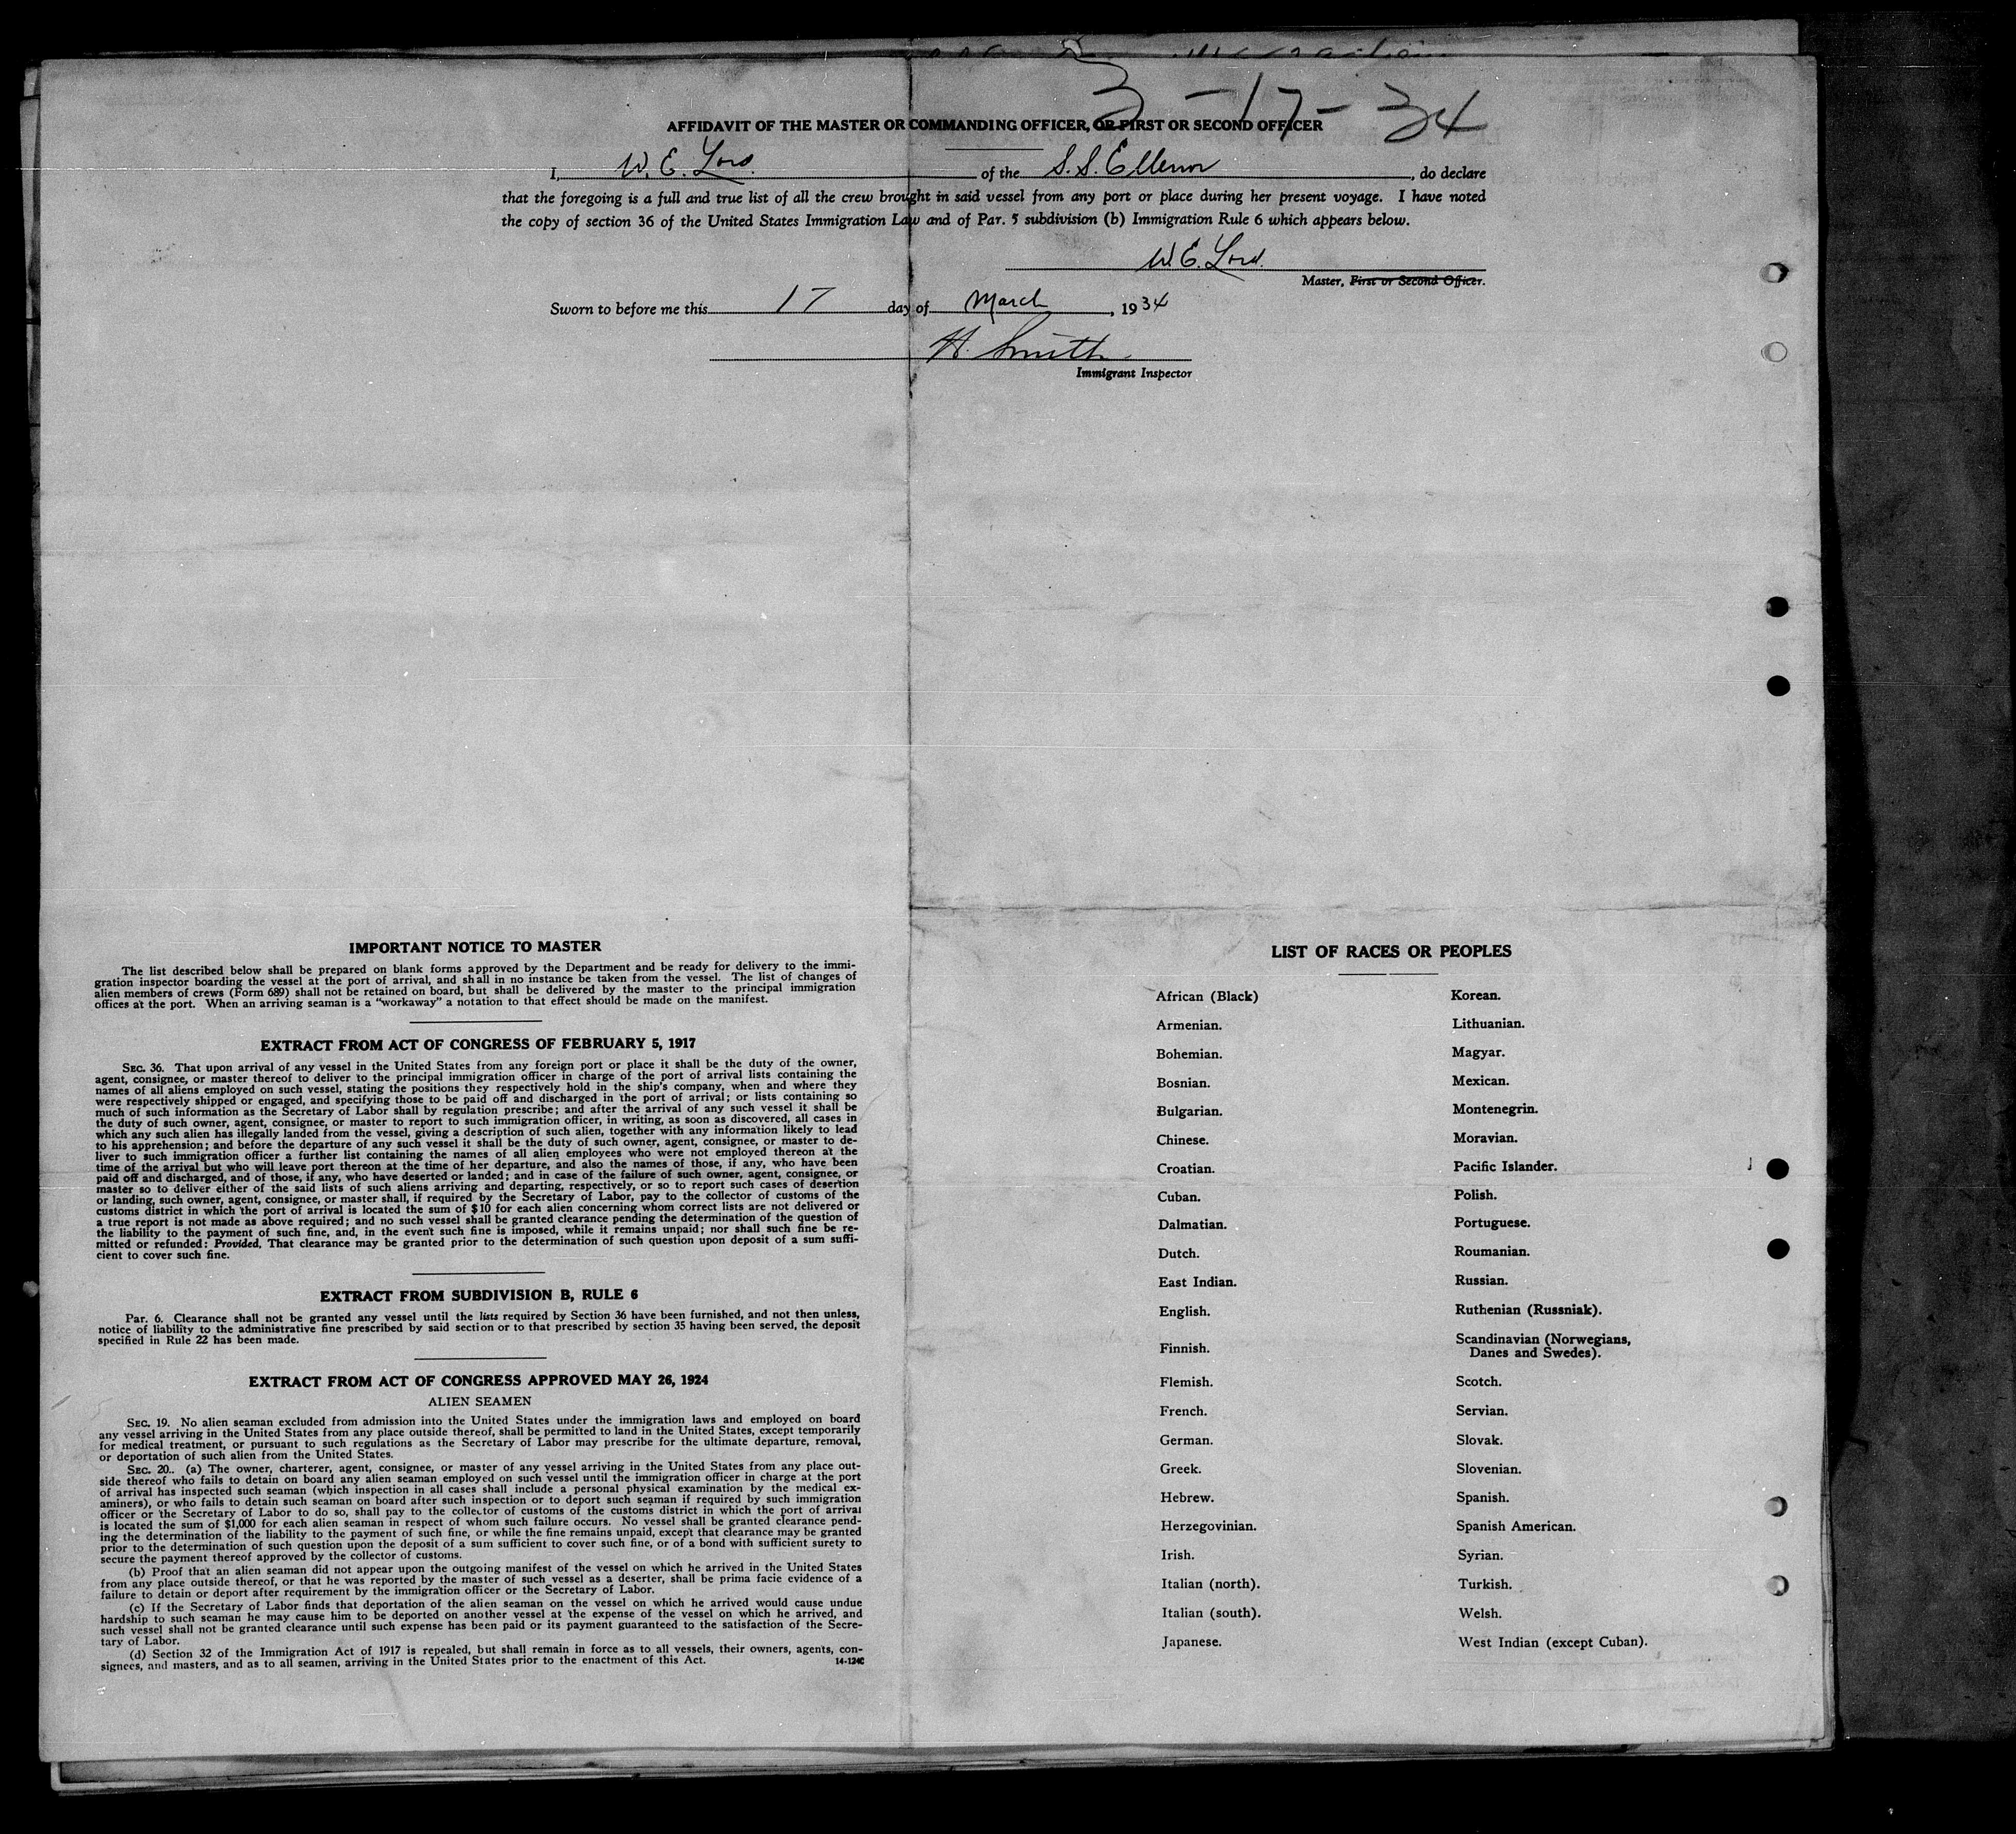 3-17-34
AFFIDAVIT OF THE MASTER OR COMMANDING OFFICER, OR FIRST OR SECOND OFFICER
I, W. E. Lord. of the S.S. Ellenor, do declare
that the foregoing is a full and true list of all the crew brought in said vessel from any port or place during her present voyage. I have noted
the copy of section 36 of the United States Immigration Law and of Par. 5 subdivision (b) Immigration Rule 6 which appears below.
W. E. Lord.
Master, First or Second Officer.
Sworn to before me this 17 day of March, 1934
H. Smith
Immigrant Inspector
IMPORTANT NOTICE TO MASTER
The list described below shall be prepared on blank forms approved by the Department and be ready for delivery to the immi-
gration inspector boarding the vessel at the port of arrival, and shall in no instance be taken from the vessel. The list of changes of
alien members of crews (Form 689) shall not be retained on board, but shall be delivered by the master to the principal immigration
offices at the port. When an arriving seaman is a "workaway" a notation to that effect should be made on the manifest.
EXTRACT FROM ACT OF CONGRESS OF FEBRUARY 5, 1917
SEC. 36. That upon arrival of any vessel in the United States from any foreign port or place it shall be the duty of the owner,
agent, consignee, or master thereof to deliver to the principal immigration officer in charge of the port of arrival lists containing the
names of all aliens employed on such vessel, stating the positions they respectively hold in the ship's company, when and where they
were respectively shipped or engaged, and specifying those to be paid off and discharged in the port of arrival; or lists containing so
much of such information as the Secretary of Labor shall by regulation prescribe; and after the arrival of any such vessel it shall be
the duty of such owner, agent, consignee, or master to report to such immigration officer, in writing, as soon as discovered, all cases in
which any such alien has illegally landed from the vessel, giving a description of such alien, together with any information likely to lead
to his apprehension; and before the departure of any such vessel it shall be the duty of such owner, agent, consignee, or master to de-
liver to such immigration officer a further list containing the names of all alien employees who were not employed thereon at the
time of the arrival but who will leave port thereon at the time of her departure, and also the names of those, if any, who have been
paid off and discharged, and of those, if any, who have deserted or landed; and in case of the failure of such owner, agent, consignee, or
master so to deliver either of the said lists of such aliens arriving and departing, respectively, or so to report such cases of desertion
or landing, such owner, agent, consignee, or master shall, if required by the Secretary of Labor, pay to the collector of customs of the
customs district in which the port of arrival is located the sum of $10 for each alien concerning whom correct lists are not delivered or
a true report is not made as above required; and no such vessel shall be granted clearance pending the determination of the question of
the liability to the payment of such fine, and, in the event such fine is imposed, while it remains unpaid; nor shall such fine be re-
mitted or refunded: Provided, That clearance may be granted prior to the determination of such question upon deposit of a sum suffi-
cient to cover such fine.
EXTRACT FROM SUBDIVISION B, RULE 6
Par. 6. Clearance shall not be granted any vessel until the lists required by Section 36 have been furnished, and not then unless,
notice of liability to the administrative fine prescribed by said section or to that prescribed by section 35 having been served, the deposit
specified in Rule 22 has been made.
EXTRACT FROM ACT OF CONGRESS APPROVED MAY 26, 1924
ALIEN SEAMEN
SEC. 19. No alien seaman excluded from admission into the United States under the immigration laws and employed on board
any vessel arriving in the United States from any place outside thereof, shall be permitted to land in the United States, except temporarily
for medical treatment, or pursuant to such regulations as the Secretary of Labor may prescribe for the ultimate departure, removal,
or deportation of such alien from the United States.
SEC. 20.. (a) The owner, charterer, agent, consignee, or master of any vessel arriving in the United States from any place out-
side thereof who fails to detain on board any alien seaman employed on such vessel until the immigration officer in charge at the port
of arrival has inspected such seaman (which inspection in all cases shall include a personal physical examination by the medical ex-
aminers), or who fails to detain such seaman on board after such inspection or to deport such seaman if required by such immigration
officer or the Secretary of Labor to do so, shall pay to the collector of customs of the customs district in which the port of arrival
is located the sum of $1,000 for each alien seaman in respect of whom such failure occurs. No vessel shall be granted clearance pend-
ing the determination of the liability to the payment of such fine, or while the fine remains unpaid, except that clearance may be granted
prior to the determination of such question upon the deposit of a sum sufficient to cover such fine, or of a bond with sufficient surety to
secure the payment thereof approved by the collector of customs.
(b) Proof that an alien seaman did not appear upon the outgoing manifest of the vessel on which he arrived in the United States
from any place outside thereof, or that he was reported by the master of such vessel as a deserter, shall be prima facie evidence of a
failure to detain or deport after requirement by the immigration officer or the Secretary of Labor.
(c) If the Secretary of Labor finds that deportation of the alien seaman on the vessel on which he arrived would cause undue
hardship to such seaman he may cause him to be deported on another vessel at the expense of the vessel on which he arrived, and
such vessel shall not be granted clearance until such expense has been paid or its payment guaranteed to the satisfaction of the Secre-
tary of Labor.
(d) Section 32 of the Immigration Act of 1917 is repealed, but shall remain in force as to all vessels, their owners, agents, con-
signees, and masters, and as to all seamen, arriving in the United States prior to the enactment of this Act.
LIST OF RACES OR PEOPLES
African (Black)
Armenian.
Bohemian.
Bosnian.
Bulgarian.
Chinese.
Croatian.
Cuban.
Dalmatian.
Dutch.
East Indian.
English.
Finnish.
Flemish.
French.
German.
Greek.
Hebrew.
Herzegovinian.
Irish.
Italian (north).
Italian (south).
Japanese.
Korean.
Lithuanian.
Magyar.
Mexican.
Montenegrin.
Moravian.
Pacific Islander.
Polish.
Portuguese.
Roumanian.
Russian.
Ruthenian (Russniak).
Scandinavian (Norwegians,
Danes and Swedes).
Scotch.
Servian.
Slovak.
Slovenian.
Spanish.
Spanish American.
Syrian.
Turkish.
Welsh.
West Indian (except Cuban).